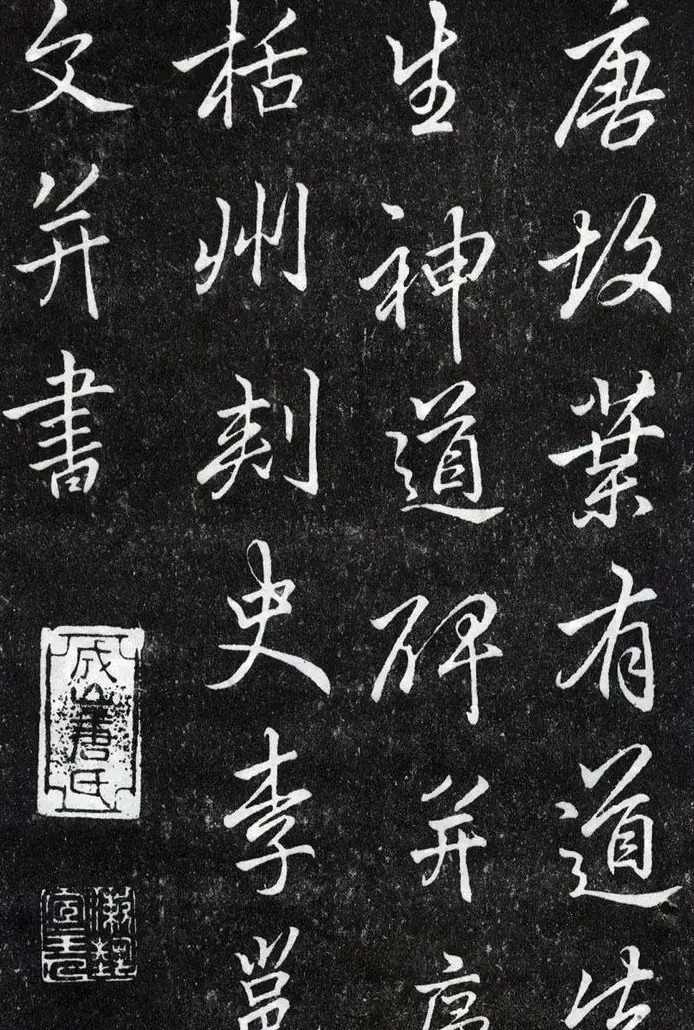 唐故葉有道先
生神道碑并序
栝州刺史李邕
文并書
成山唐氏